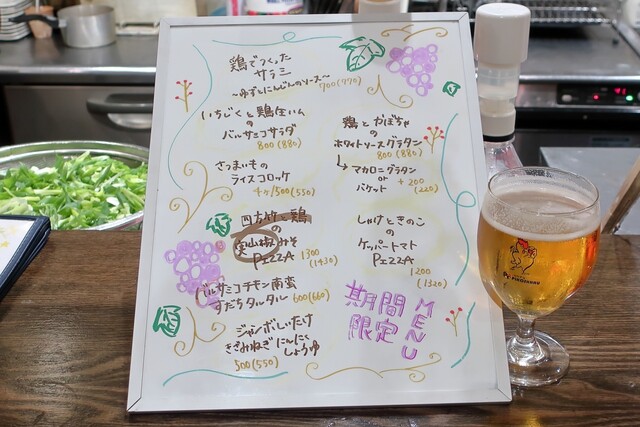 鶏でつくった
サラミ
~ゆずとにんじんのソース~
700(770)
いちじくと鶏生ハム
の
バルサミコサラダ
880(880)
さつまいもの
ライスコロッケ
4ヶ/500(550)
四方竹と鶏
の
実山椒みそ
PIZZA 1300
(1430)
バルサミコチキン南蛮
すだちタルタル 600(660)
ジャンボしいたけ
きざみねぎにんにく
しょうゆ
500(550)
鶏とかぼちゃ
の
ホワイトソースグラタン
800(880)
マカロニグラタン
or +200
バゲット (220)
しゃけときのこ
の
ケッパートマト
PIZZA
1200
(1320)
期間
限定
MENU